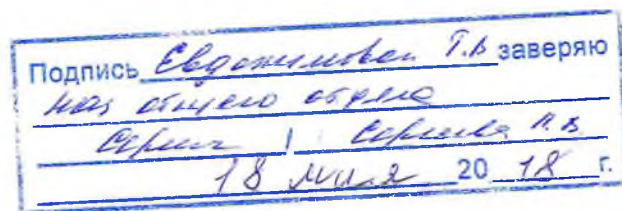 Подпись Евдокимовой Т.В заверяю
нач общего отдела
18 мая 2018 г.